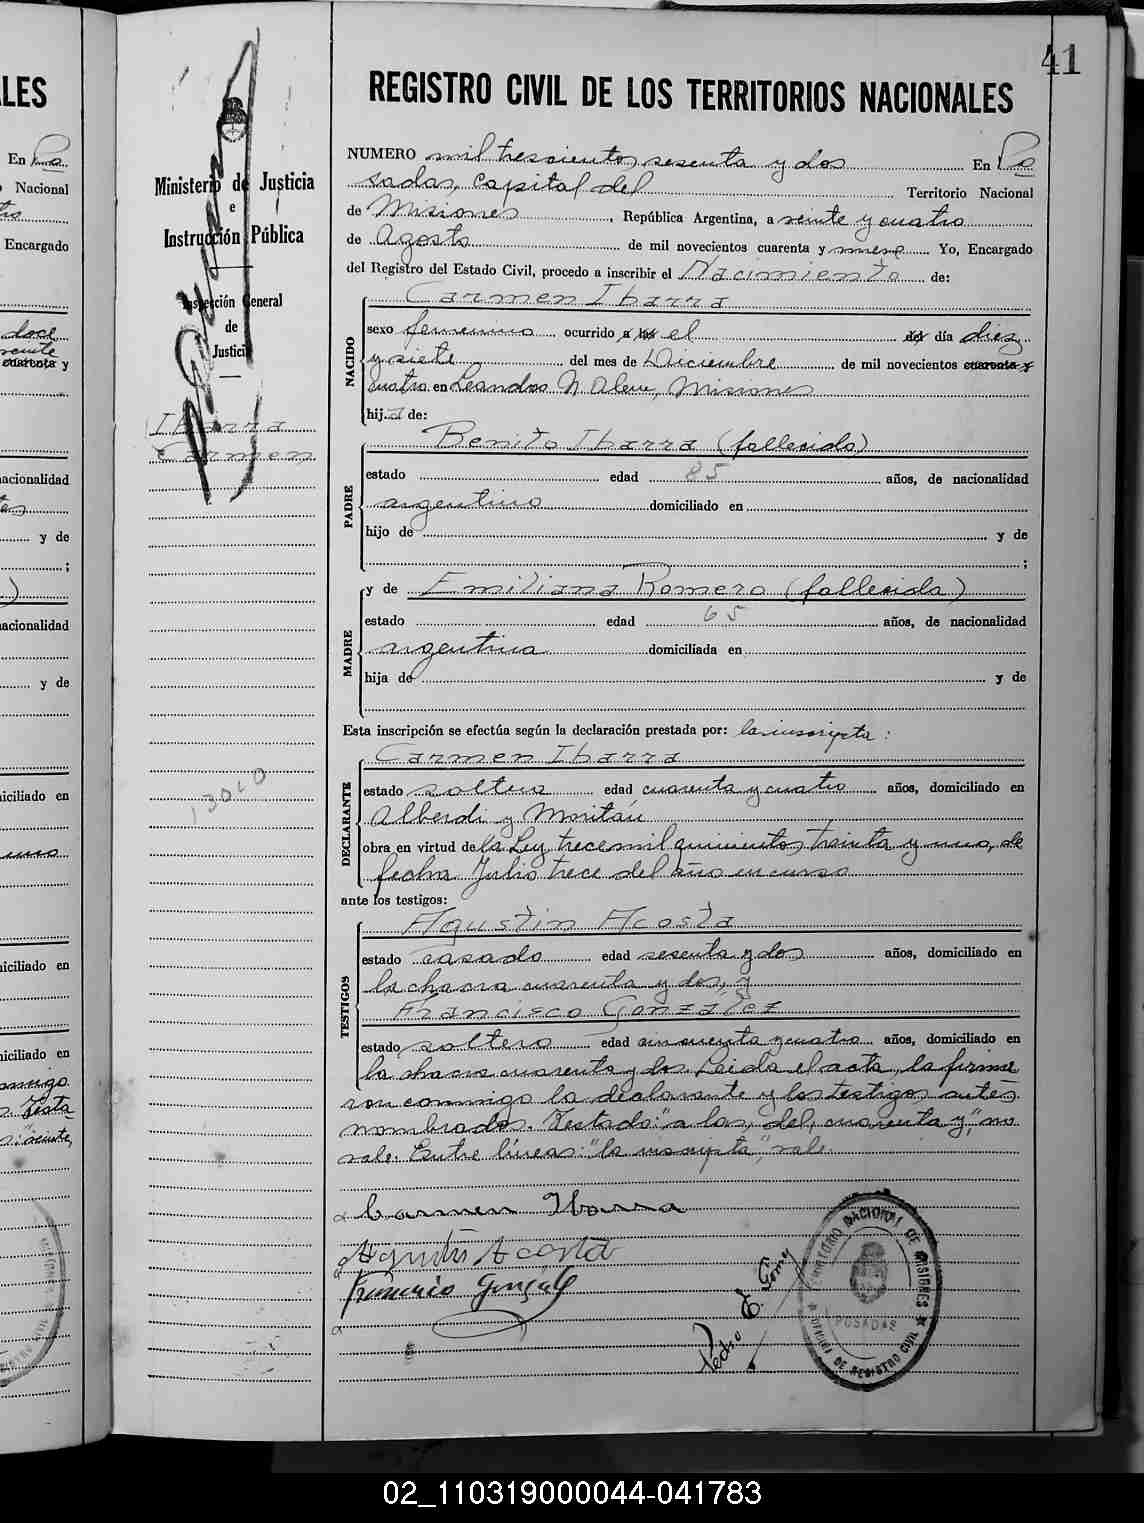 41
LES
REGISTRO CIVIL DE LOS TERRITORIOS NACIONALES
Ministerio de Justicia
e
Instrucción Pública
Inspección General
de
Justicia
Ibarra
Carmen
13010
NUMERO mil trescientos sesenta y dos En Po
sadas, capital del Territorio Nacional
de Misiones, República Argentina, a veinte y cuatro
de Agosto de mil novecientos cuarenta y nueve Yo, Encargado
del Registro del Estado Civil, procedo a inscribir el Nacimiento de:
NACIDO
Carmen Ibarra
sexo femenino ocurrido a las el del día diez
y siete del mes de Diciembre de mil novecientos cuarenta y
cuatro en Leandro N. Alem, Misiones
hija de:
PADRE
Benito Ibarra (fallecido)
estado edad 85 años, de nacionalidad
argentino domiciliado en
hijo de y de
;
MADRE
y de Emiliana Romero (fallecida)
estado edad 65 años, de nacionalidad
argentina domiciliada en
hija de y de
Esta inscripción se efectúa según la declaración prestada por: la inscripta:
DECLARANTE
Carmen Ibarra
estado soltera edad cuarenta y cuatro años, domiciliado en
Alberdi y
obra en virtud de la Ley trece mil quinientos treinta y uno, de
fecha Julio trece del año en curso
ante los testigos:
TESTIGOS
Agustin Acosta
estado casado edad sesenta y dos años, domiciliado en
la chacra cuarenta y dos, y
Francisco González
estado soltero edad cincuenta y cuatro años, domiciliado en
la chacra cuarenta y dos. Leida el acta, la firma
ron conmigo la declarante y los testigos antes
nombrados. Testado: "a las, del, cuarenta y", no
vale. Entre líneas: "la inscripta", vale.
Carmen Ibarra
Agustin Acosta
Francisco González
Pedro E. Gomez
TERRITORIO NACIONAL DE MISIONES
POSADAS
OFICINA DE REGISTRO CIVIL
02_110319000044-041783